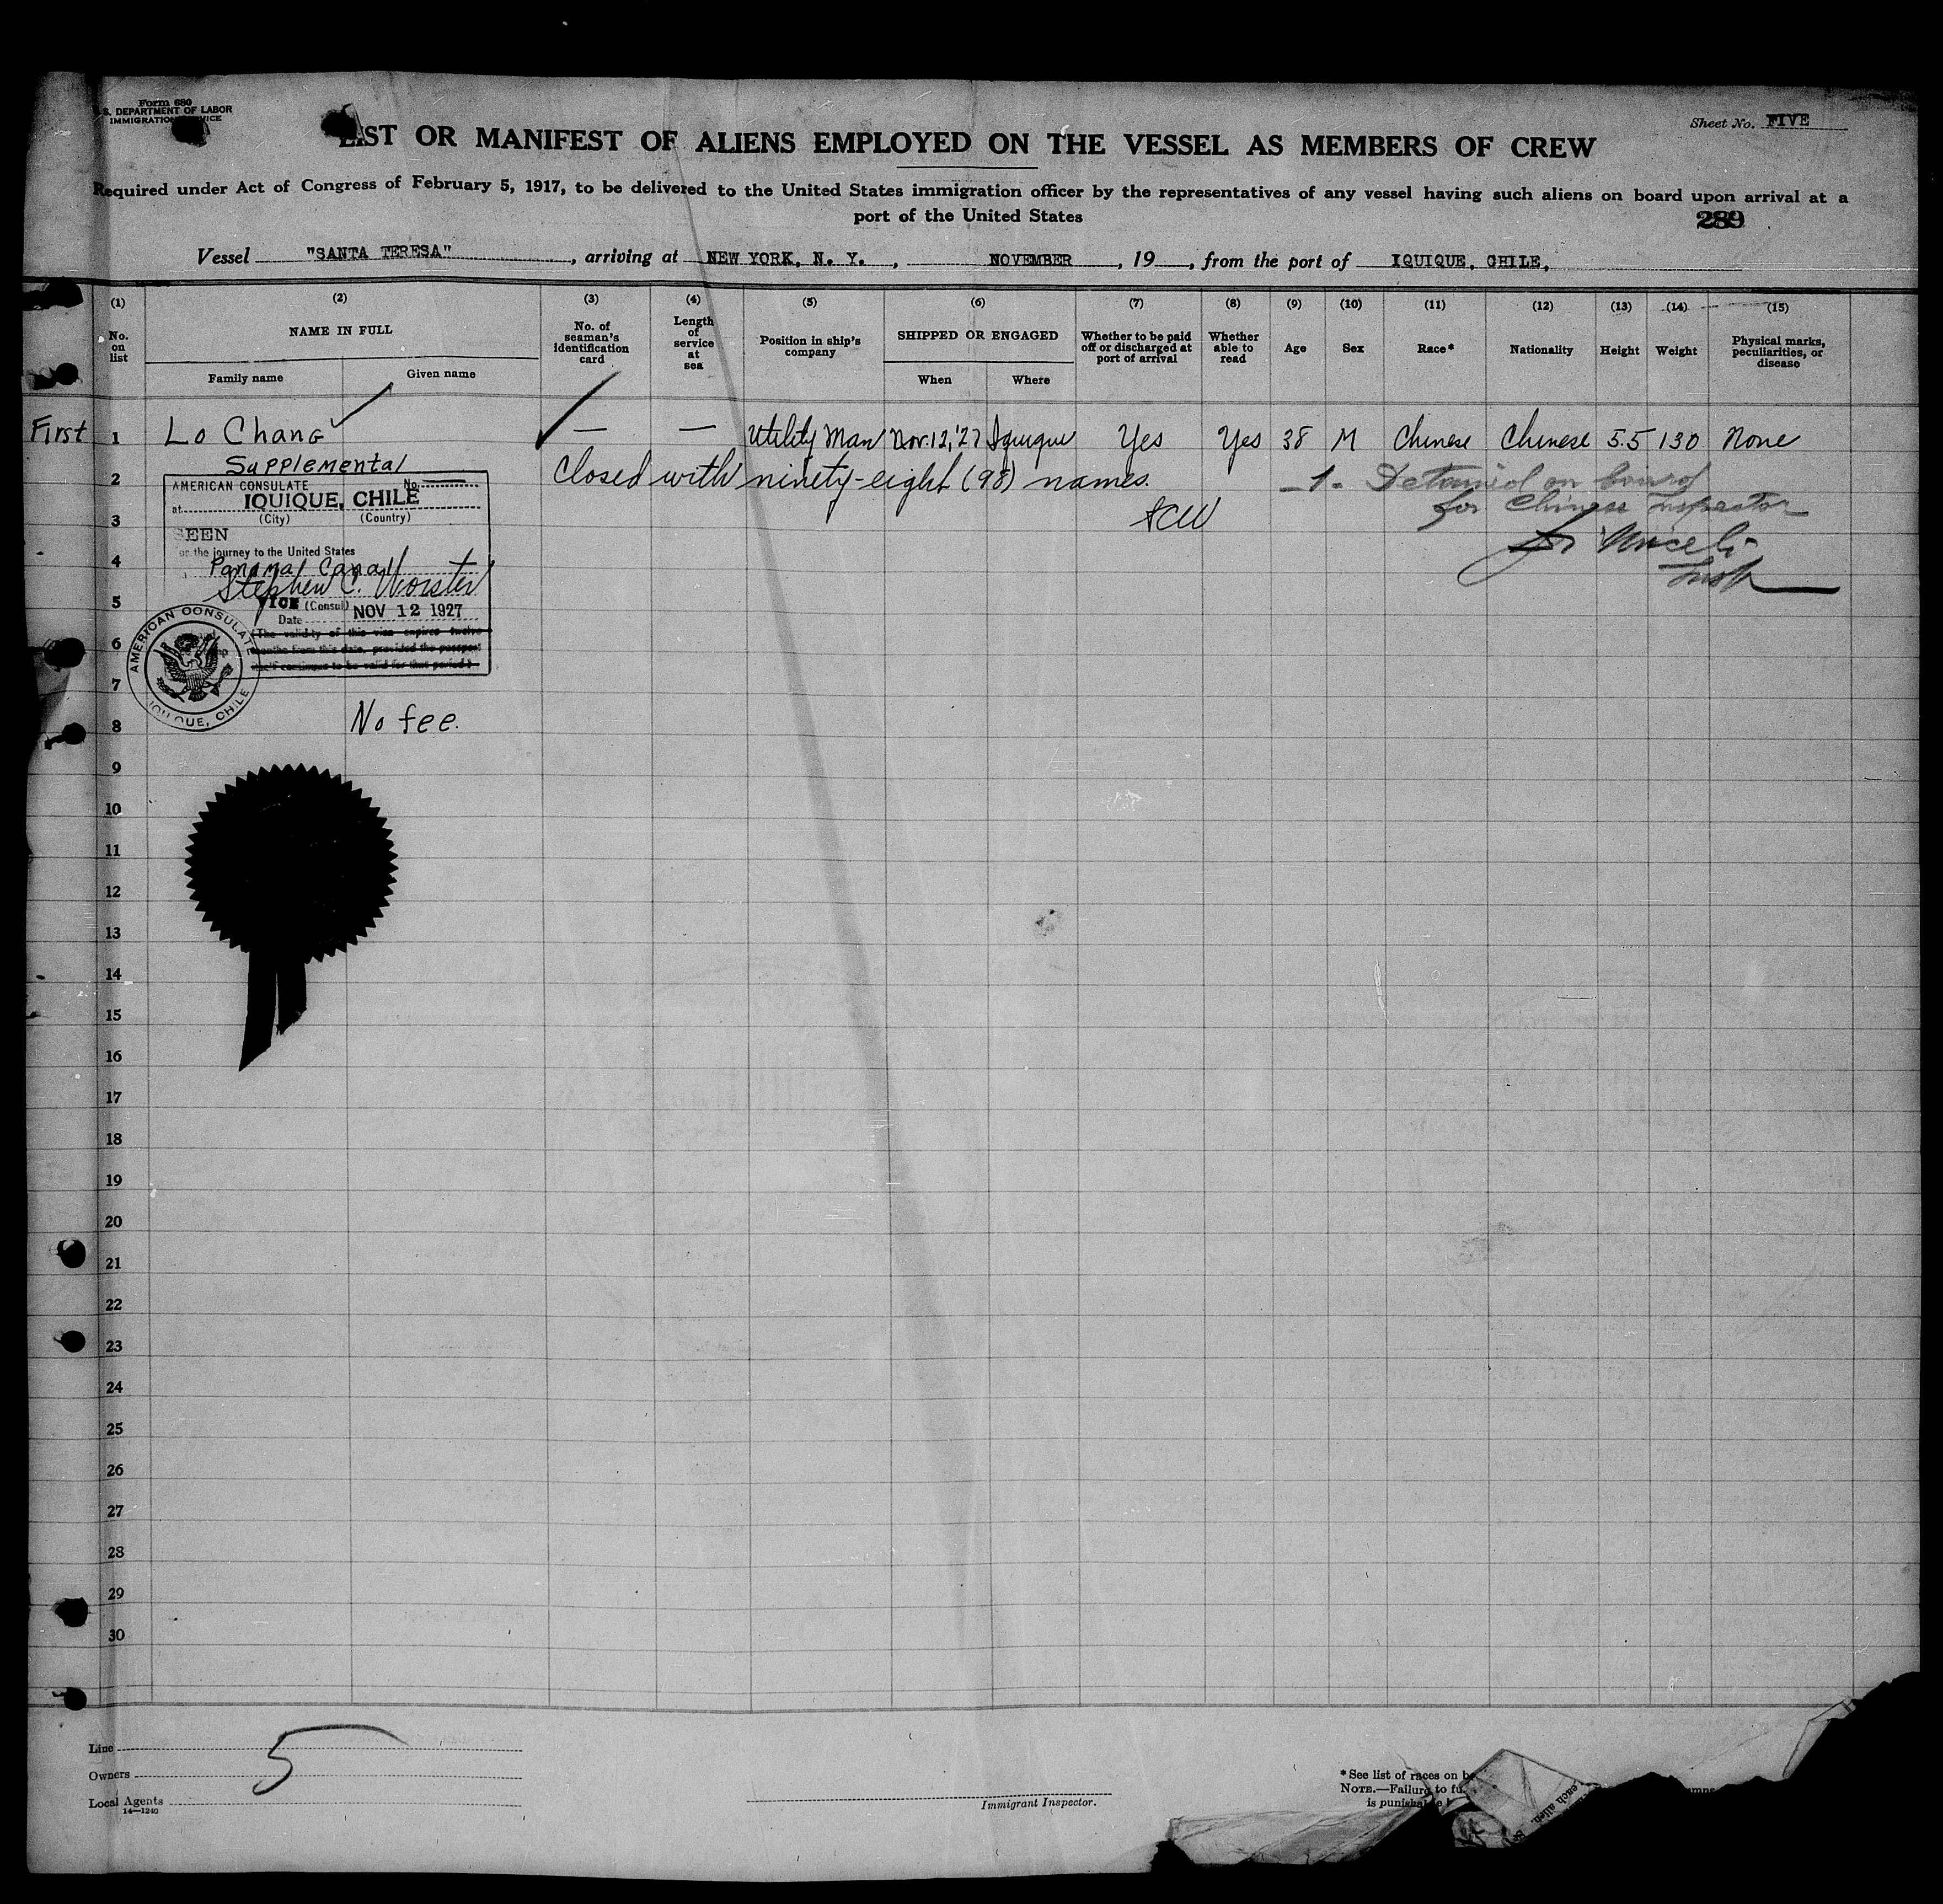 Form 680
S. DEPARTMENT OF LABOR
IMMIGRATION SERVICE
Sheet No. FIVE
LIST OR MANIFEST OF ALIENS EMPLOYED ON THE VESSEL AS MEMBERS OF CREW
Required under Act of Congress of February 5, 1917, to be delivered to the United States immigration officer by the representatives of any vessel having such aliens on board upon arrival at a
port of the United States
289
Vessel "SANTA TERESA", arriving at NEW YORK, N. Y., NOVEMBER, 19, from the port of IQUIQUE, CHILE,
(1) (2) (3) (4) (5) (6) (7) (8) (9) (10) (11) (12) (13) (14) (15)
No. on list NAME IN FULL Family name Given name No. of seaman's identification card Length of service at sea Position in ship's company SHIPPED OR ENGAGED When Where Whether to be paid off or discharged at port of arrival Whether able to read Age Sex Race* Nationality Height Weight Physical marks, peculiarities, or disease
First 1 Lo Chang — — Utility Man Nov. 12, '27 Iquique Yes Yes 38 M Chinese Chinese 5.5 130 None
Supplemental
2 Closed with ninety-eight (98) names. -1- Detained on board
for Chinese Inspector
SCW
AMERICAN CONSULATE No.
at IQUIQUE, CHILE
(City) (Country)
3
SEEN
or the journey to the United States
4
Panama Canal
Stephen C. Worster
5
VICE (Consul)
Date NOV 12 1927
(The validity of this visa expires twelve
6
months from this date, provided the passport
itself continues to be valid for that period.)
AMERICAN CONSULATE
IQUIQUE, CHILE
7
No fee.
8
9
10
11
12
13
14
15
16
17
18
19
20
21
22
23
24
25
26
27
28
29
30
5
Line
Owners
Local Agents
14—1240
Immigrant Inspector.
* See list of races on
NOTE.—Failure to
is
each alien.